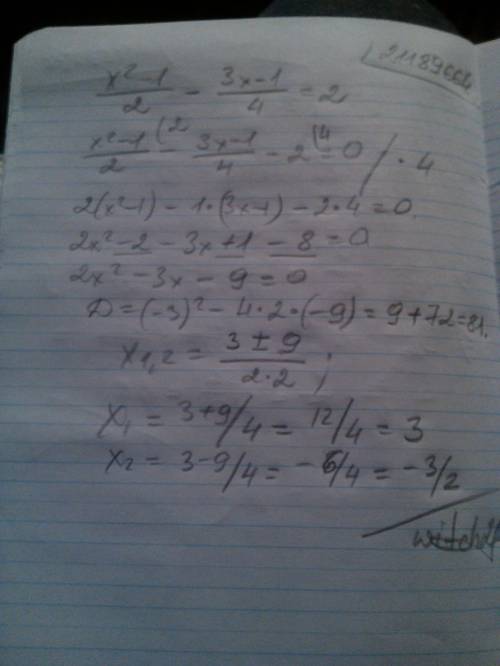 21189664
x²-1/2 - 3x-1/4 = 2
x²-1/2 (2 - 3x-1/4 - 2 (4 = 0 / · 4
2(x²-1) - 1·(3x-1) - 2·4 = 0
2x² - 2 - 3x + 1 - 8 = 0
2x² - 3x - 9 = 0
D = (-3)² - 4·2·(-9) = 9 + 72 = 81.
x1,2 = 3 ± 9 / 2·2 ;
x1 = 3+9/4 = 12/4 = 3
x2 = 3-9/4 = -6/4 = -3/2